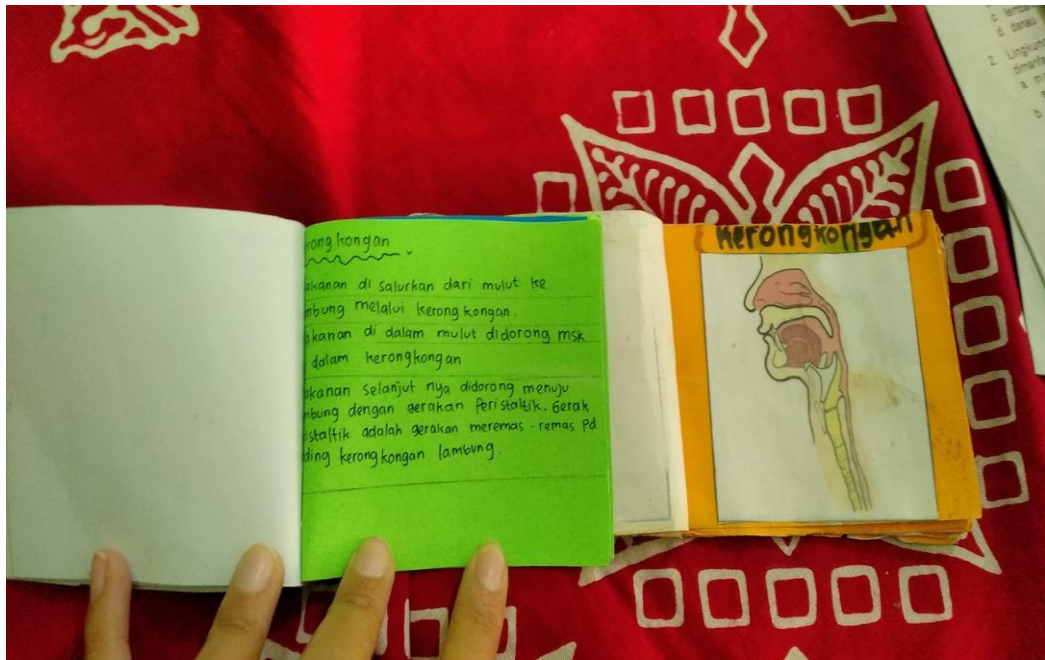 rongkongan
akanan di salurkan dari mulut ke
mbung melalui kerongkongan.
akanan di dalam mulut didorong msk
dalam kerongkongan
akanan selanjut nya didorong menuju
mbung dengan gerakan Peristaltik. Gerak
istaltik adalah gerakan meremas-remas Pd
ding kerongkongan lambung.
kerongkongan
c. lemba
d. danau
2. Lingkung
dimanfa
a. m
b.